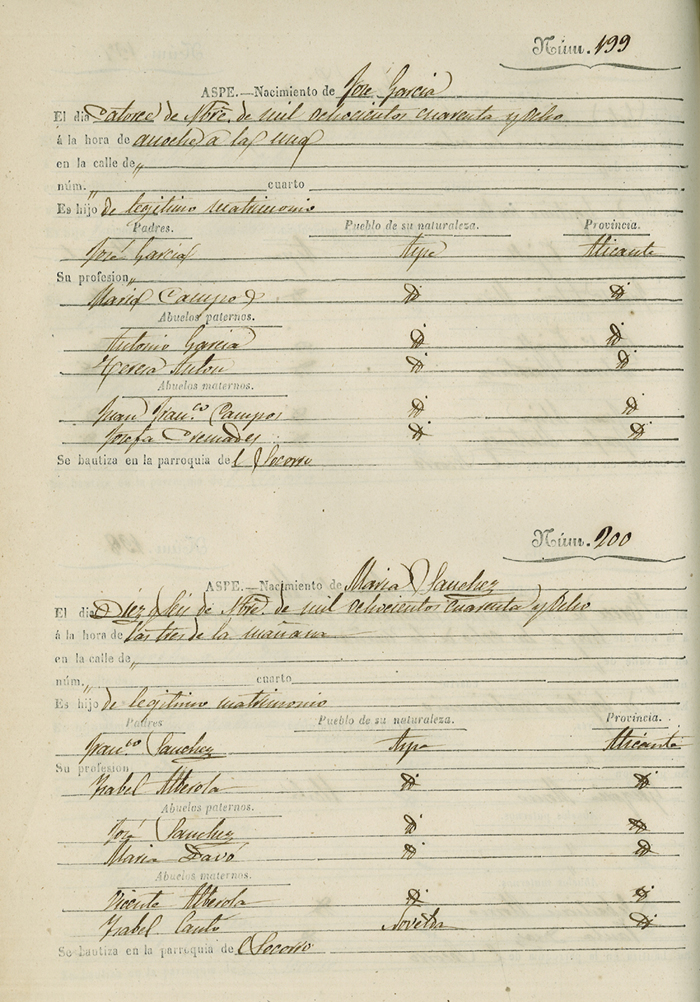 Núm. 199
ASPE.—Nacimiento de José Garcia
El dia Catorce de Nbre. de mil ochocientos cuarenta y Ocho
á la hora de anoche a la una
en la calle de "
núm. " cuarto
Es hijo de legitimo matrimonio
Padres. Pueblo de su naturaleza. Provincia.
José Garcia Aspe Alicante
Su profesion "
Maria Campos id id
Abuelos paternos.
Antonio Garcia id id
Teresa Anton id id
Abuelos maternos.
Juan Fran.co Campos id id
Josefa Cremades id id
Se bautiza en la parroquia de l Socorro
Núm. 200
ASPE.—Nacimiento de Maria Sanchez
El dia Diez y Seis de Nbre. de mil ochocientos cuarenta y Ocho
á la hora de las tres de la mañana
en la calle de "
núm. " cuarto
Es hijo de legitimo matrimonio
Padres Pueblo de su naturaleza. Provincia.
Fran.co Sanchez Aspe Alicante
Su profesion
Isabel Alberola id id
Abuelos paternos.
José Sanchez id id
Maria Davó id id
Abuelos maternos.
Vicente Alberola id id
Isabel Cantó Novelda id
Se bautiza en la parroquia de l Socorro